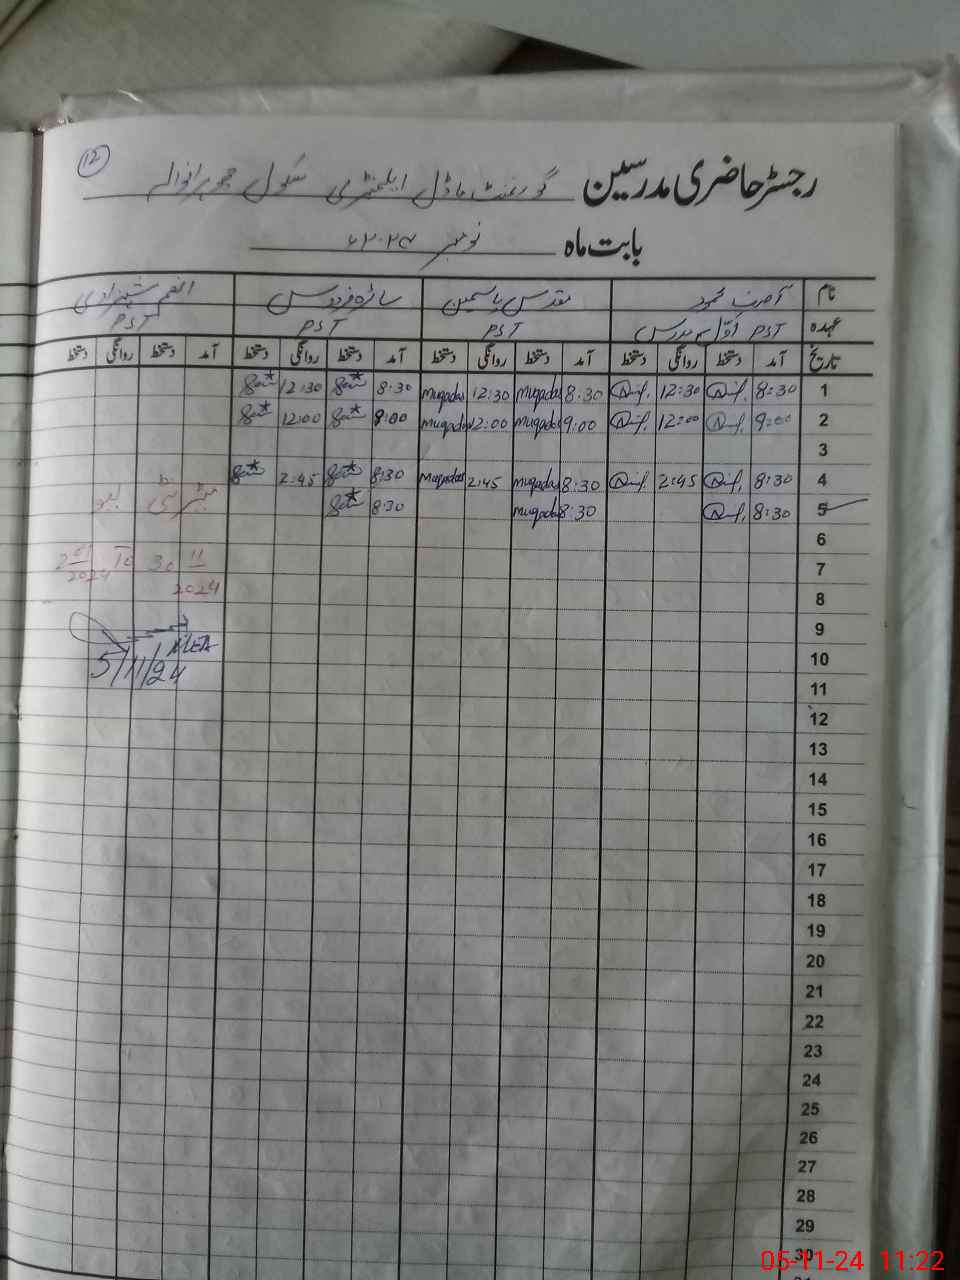 12
رجسٹر حاضری مدرسین گورنمنٹ ماڈل ایلیمنٹری سکول
بابت ماہ نومبر ۲۰۲۴ء
نام آصف محمود مقدس یاسمین سائرہ فردوس انعم شہزادی
عہدہ PST اوّل مدرس PST PST PST
تاریخ آمد دستخط روانگی دستخط آمد دستخط روانگی دستخط آمد دستخط روانگی دستخط آمد دستخط روانگی دستخط
1 8:30 12:30 8:30 muqadas 12:30 muqadas 8:30 12:30
2 9:00 12:00 9:00 muqadas 12:00 muqadas 9:00 12:00
3
4 8:30 2:45 8:30 muqadas 2:45 muqadas 8:30 2:45 میٹرنٹی لیو
5 8:30 8:30 muqadas 8:30
6
7 To 30 11 2024
8
9
10 5/11/24
11
12
13
14
15
16
17
18
19
20
21
22
23
24
25
26
27
28
29
30
05-11-24 11:22